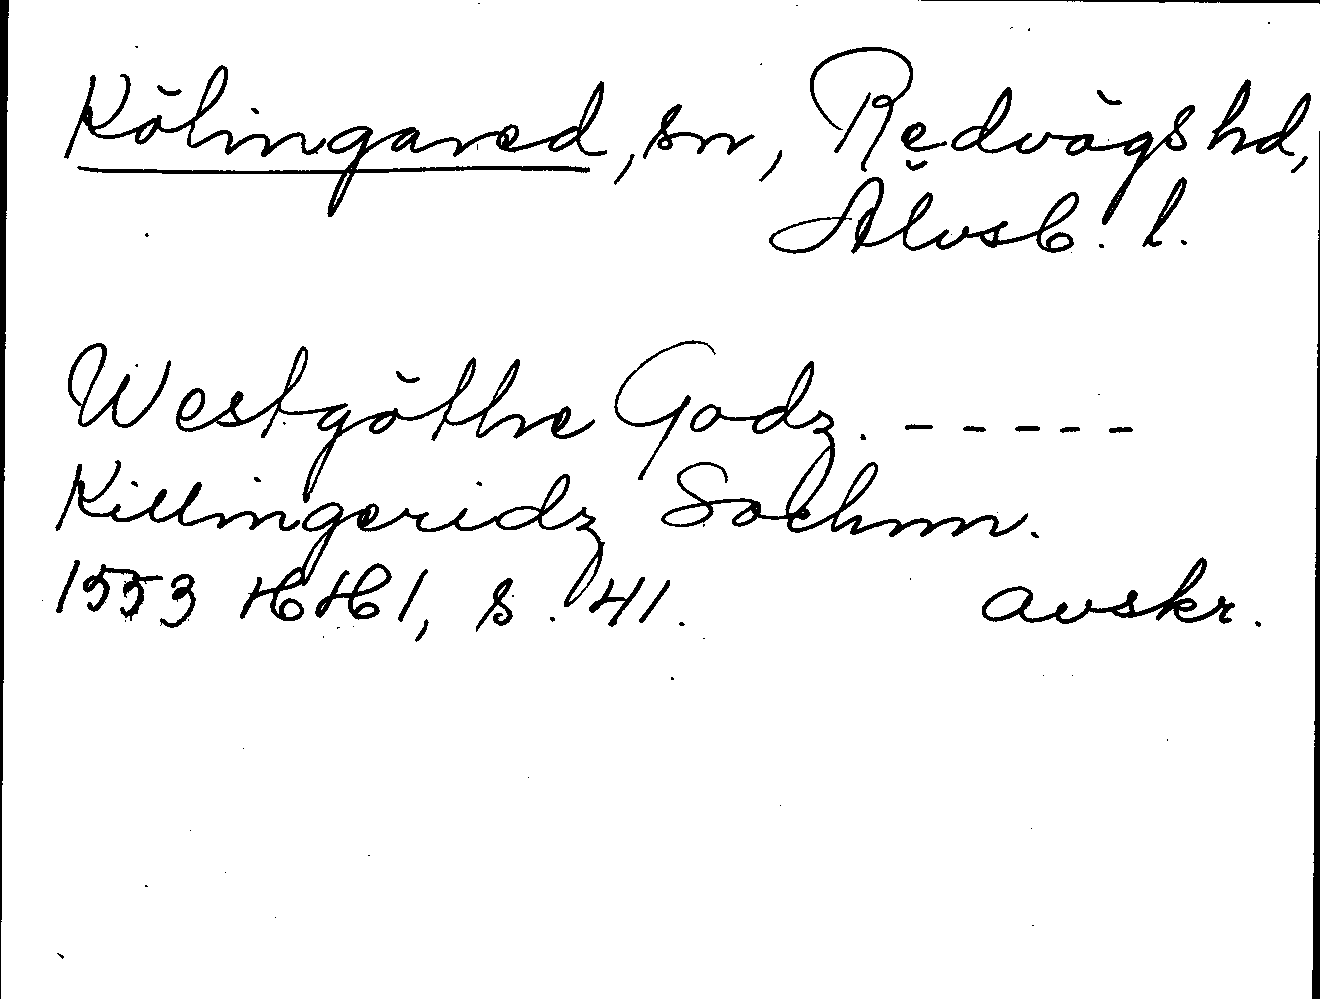 Kölingared, sn, Redvägs hd,
Älvsb. l.
Westgöthe Godz. - - - - -
Killingeridz Sochnn.
1553 HH1, s. 41. avskr.